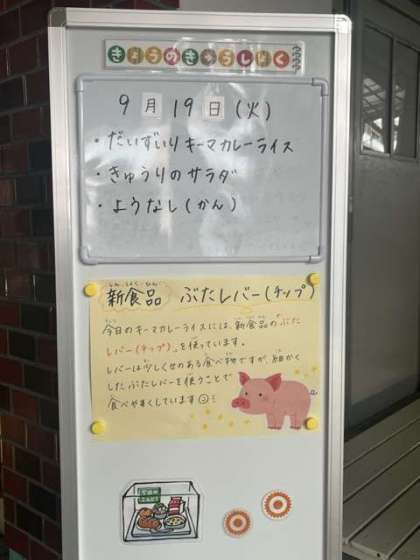 きょうのきゅうしょく
9月19日(火)
・だいずいりキーマカレーライス
・きゅうりのサラダ
・ようなし(かん)
新食品 ぶたレバー(チップ)
今日のキーマカレーライスには、新食品の「ぶた
レバー(チップ)」を使っています。
レバーは少しくせのある食べ物ですが、細かく
したぶたレバーを使うことで
食べやすくしています